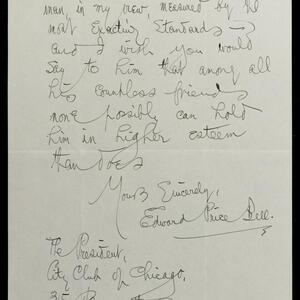 man, in my view, measured by the
most exacting standards —
and I wish you would
say to him that among all
his countless friends
none possibly can hold
him in higher esteem
than does
Yours Sincerely,
Edward Price Bell.
The President,
City Club of Chicago,